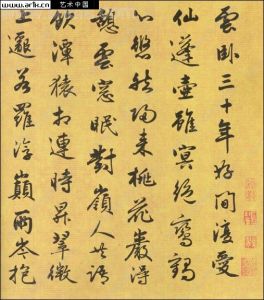 www.artx.cn 艺术中国
雲臥三十年好閒復愛
仙蓬壺雖冥絕鸞鶴
心悠然歸来桃花巖得
憩雲窓眠對嶺人共語
飲潭猿相連時昇翠微
上邈若羅浮巔兩岑抱